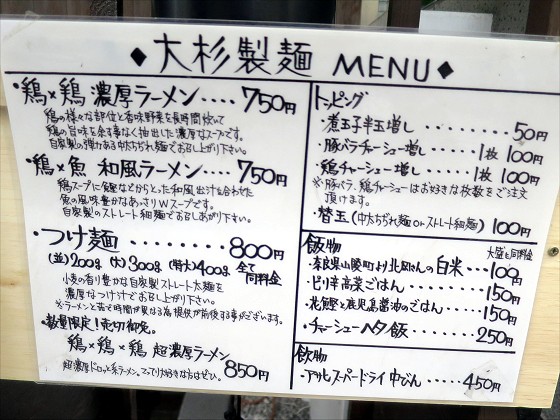 ◆大杉製麺 MENU◆
・鶏×鶏 濃厚ラーメン‥‥750円
鶏の様々な部位と香味野菜を長時間炊いて
鶏の旨味を余す事なく抽出した濃厚なスープです。
自家製の弾力ある中太ちぢれ麺でお召し上がり下さい。
・鶏×魚 和風ラーメン‥‥750円
鶏スープに鰹などからとった和風出汁を合わせた
魚の風味豊かなあっさりWスープです。
自家製のストレート細麺でお召しあがり下さい。
・つけ麺‥‥‥‥‥800円
(並)200g (大)300g (特大)400g 全て同料金
小麦の香り豊かな自家製ストレート太麺を
濃厚なつけ汁でお召し上がり下さい。
※ラーメンと茹で時間が異なる為提供が前後する事がございます。
・数量限定!売切御免。
鶏×鶏×鶏 超濃厚ラーメン
超濃厚ドロッと系ラーメン。こってり大好きな方はぜひ。 850円
トッピング
・煮玉子半玉増し‥‥‥‥50円
・豚バラチャーシュー増し‥1枚 100円
・鶏チャーシュー増し‥‥1枚 100円
※豚バラ、鶏チャーシューはお好きな枚数をご注文
頂けます。
・替玉(中太ちぢれ麺orストレート細麺) 100円
飯物 大盛も同料金
・奈良県山陵町より北岡さんの白米‥100円
・ピリ辛高菜ごはん‥‥‥150円
・花鰹と鹿児島醤油のごはん‥‥150円
・チャーシューヘタ飯‥‥‥250円
飲物
・アサヒスーパードライ 中びん‥‥450円